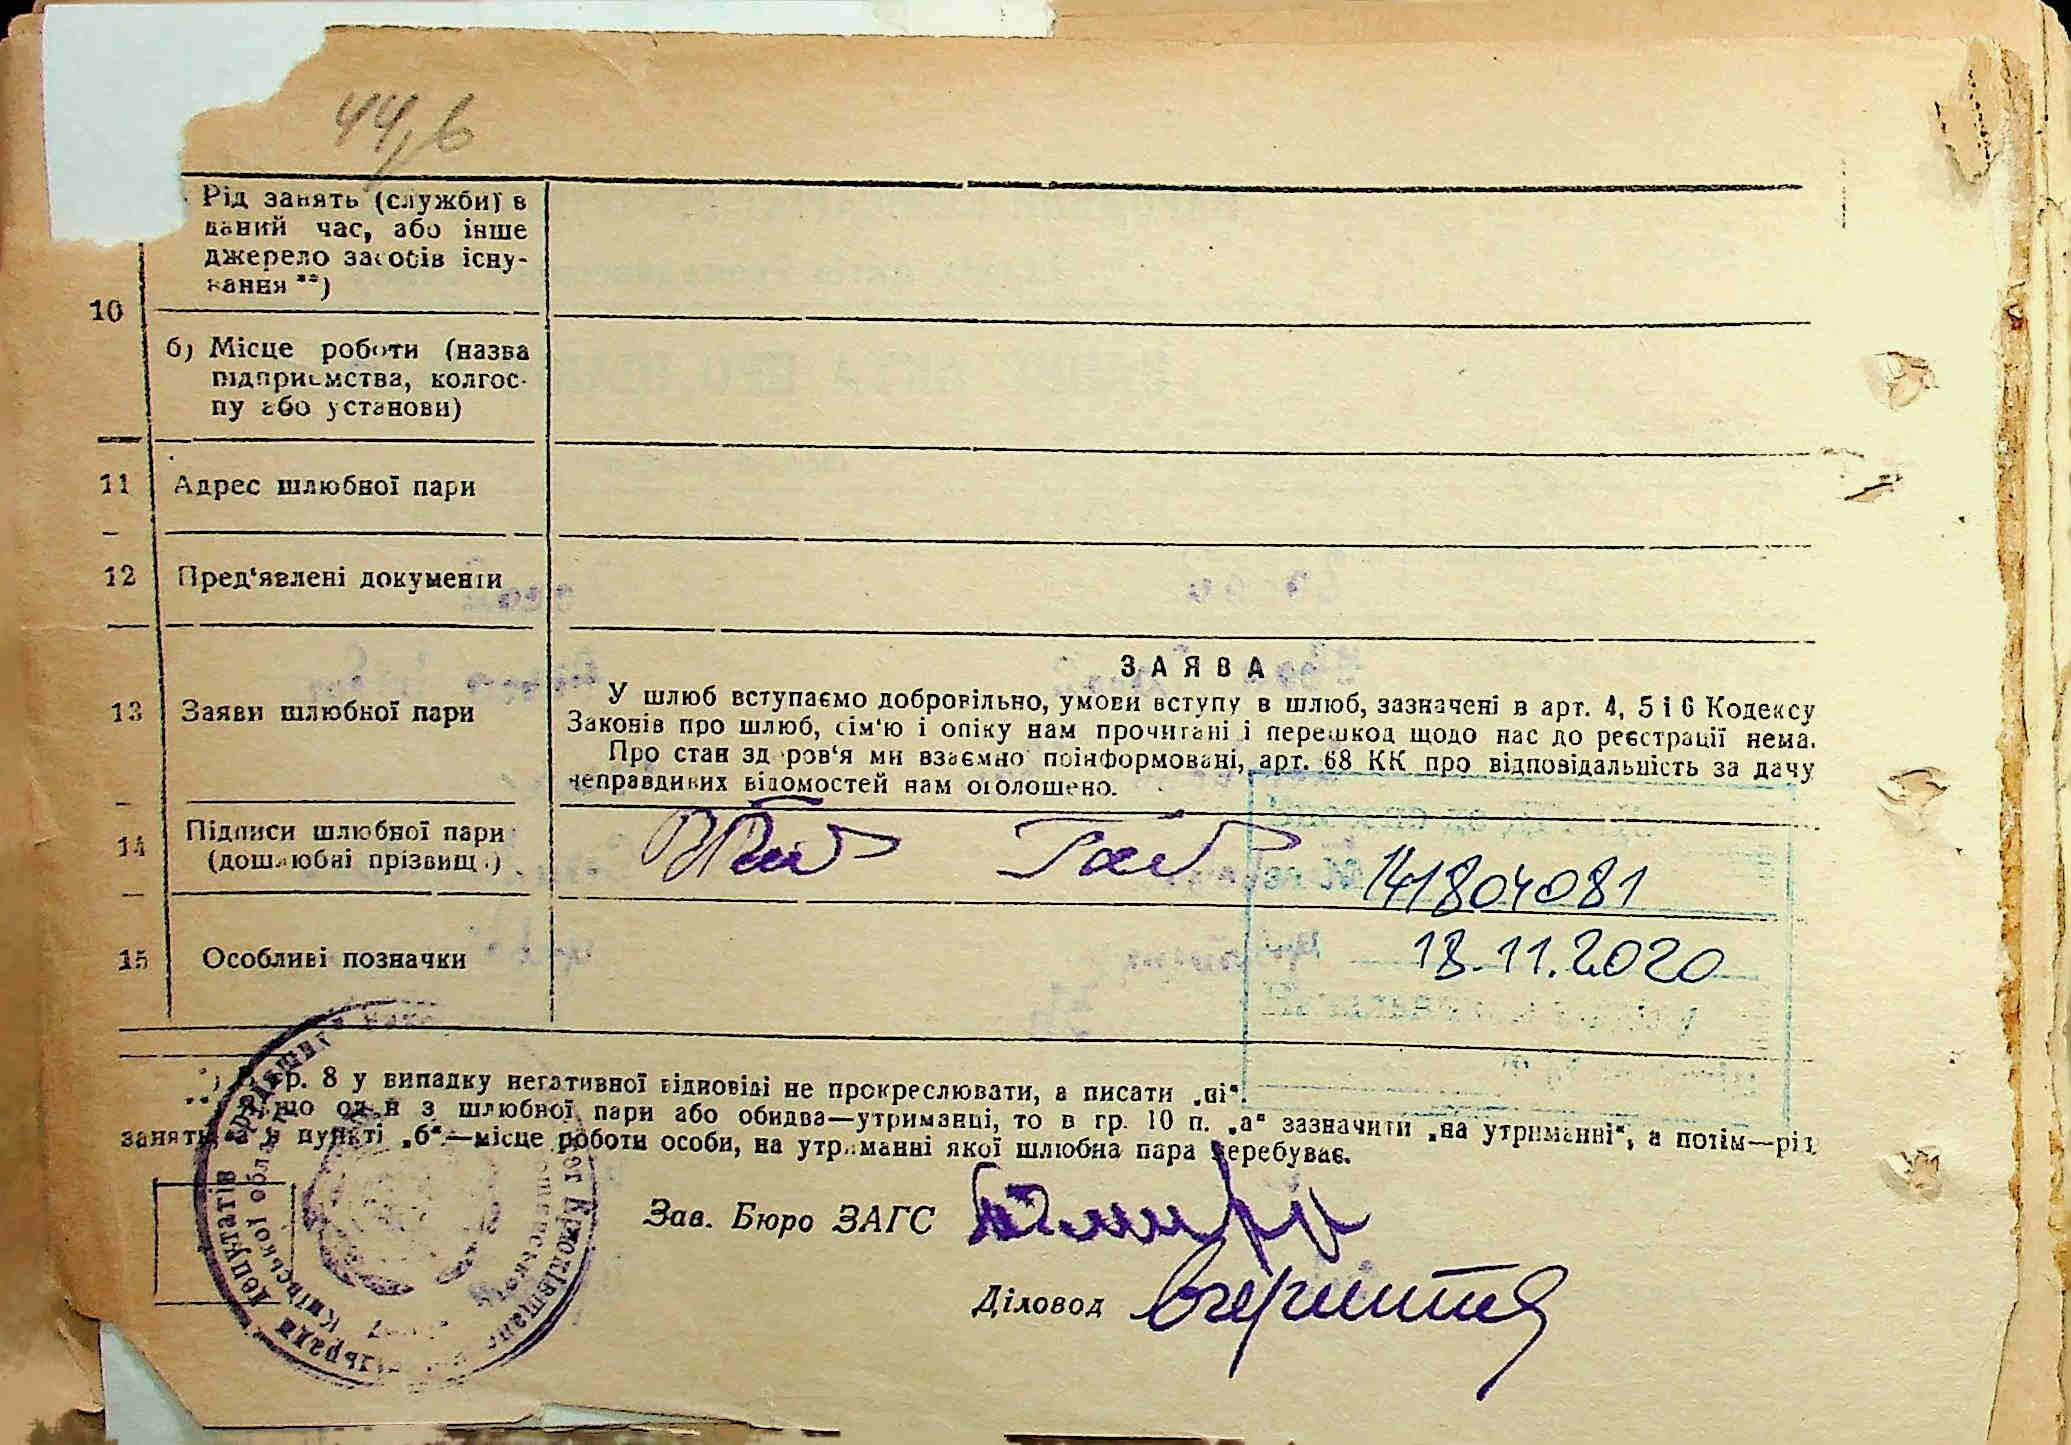 44,б
Рід занять (служби) в
даний час, або інше
джерело засобів існу-
вання **)
10
б) Місце роботи (назва
підприємства, колгос-
пу або установи)
11 Адрес шлюбної пари
12 Пред'явлені документи
13 Заяви шлюбної пари
ЗАЯВА
У шлюб вступаємо добровільно, умови вступу в шлюб, зазначені в арт. 4, 5 і 6 Кодексу
Законів про шлюб, сім'ю і опіку нам прочитані і перешкод щодо нас до реєстрації нема.
Про стан здоров'я ми взаємно поінформовані, арт. 68 КК про відповідальність за дачу
неправдивих відомостей нам оголошено.
14 Підписи шлюбної пари
(дошлюбні прізвища)
141804081
15 Особливі позначки
18.11.2020
гр. 8 у випадку негативної відповіді не прокреслювати, а писати „ні".
**) Якщо один з шлюбної пари або обидва—утриманці, то в гр. 10 п. „а" зазначити „на утриманні", а потім—рід
занять, а в пункті „б"—місце роботи особи, на утриманні якої шлюбна пара перебуває.
Зав. Бюро ЗАГС
Діловод
депутатів трудящих
Київської області